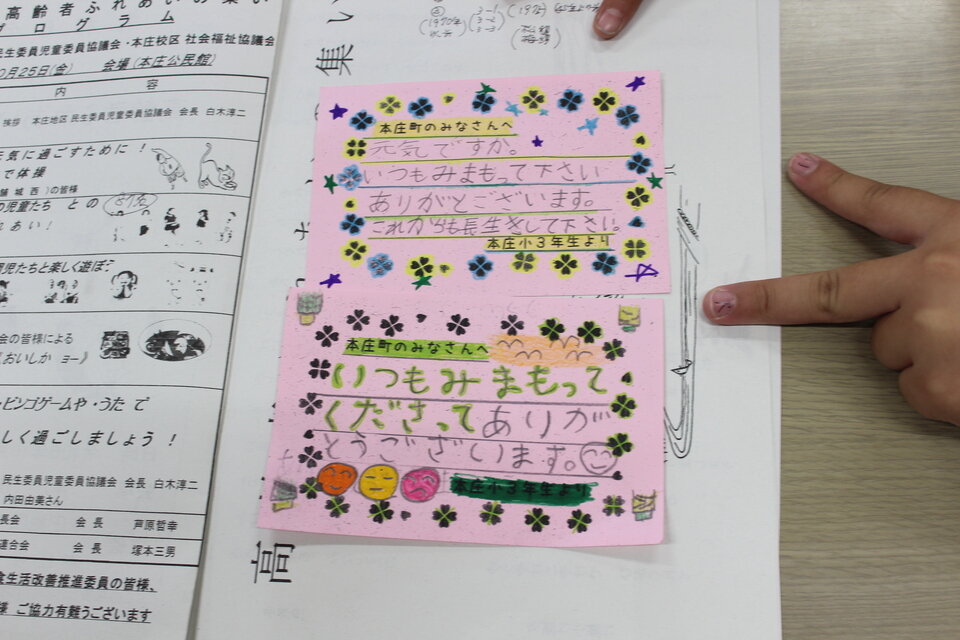 高齢者ふれあいの集い
プログラム
民生委員児童委員協議会・本庄校区 社会福祉協議会
月25日(金) 会場(本庄公民館)
内 容
挨拶 本庄地区 民生委員児童委員協議会 会長 白木淳二
元気に過ごすために！
で体操
舗 城西)の皆様
の児童たち との
れあい！
児たちと楽しく遊ぼう
会の皆様による
おいしか ョー》
ビンゴゲームや・うた で
しく過ごしましょう！
民生委員児童委員協議会 会長 白木淳二
内田由美さん
長会 会長 芦原哲幸
連合会 会長 塚本三男
食生活改善推進委員の皆様、
様 ご協力有難うございます
い
集
高
(1970年
3-1
3-2
3-3
本庄町のみなさんへ
元気ですか。
いつもみまもって下さい
ありがとございます。
これからも長生きをして下さい。
本庄小3年生より
本庄町のみなさんへ
いつもみまもって
くださってありが
とうございます。
本庄小3年生より